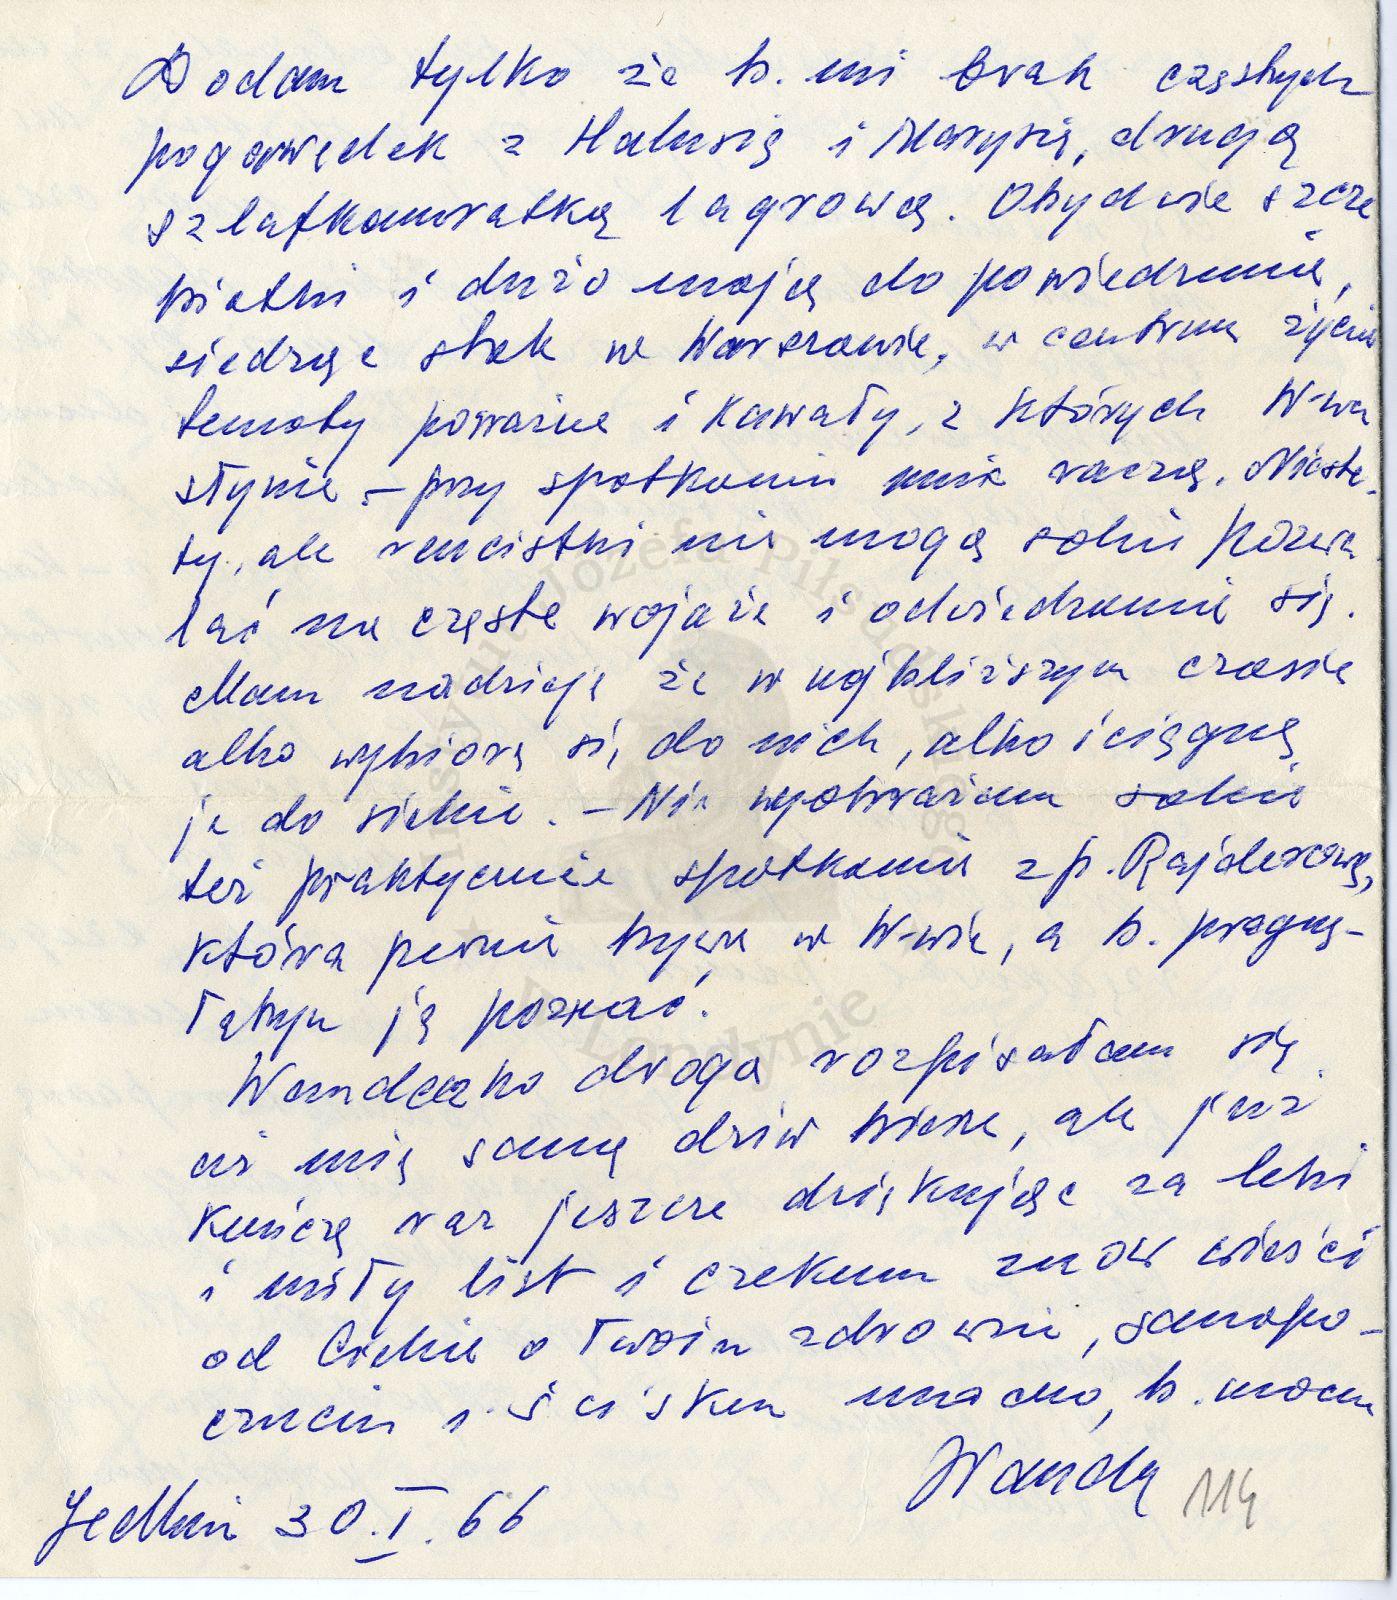 Dodam tylko że b. mi brak częstych
pogawędek z Halusią i Marysią, drugą
sztafkamratką lagrową. Obydwie szcze
biotki i dużo mają do powiedzenia,
siedząc stale w Warszawie, w centrum życia
tematy poważne i kawały, z których W-wa
słynie, – przy spotkaniu mnie raczą. Nieste-
ty, ale rencistki nie mogą sobie pozwa
lać na częste wojaże i odwiedzanie się.
Mam nadzieję że w najbliższym czasie
albo wybiorę się do nich, albo ściągnę
je do siebie. – Nie wyobrażam sobie
też praktycznie spotkania z p. Rajderową,
która pewnie bywa w W-wie, a b. pragnę-
łabym ją poznać.
Wandeczko droga rozpisałam się
aż mię samą dziw bierze, ale już
kończę raz jeszcze dziękując za leki
i miły list i czekam znów wieści
od Ciebie o Twoim zdrowiu, samopo-
czuciu i ściskam mocno, b. mocno
Wanda
114
Jedlnia 30.I.66
Instytut Józefa Piłsudskiego
w Londynie